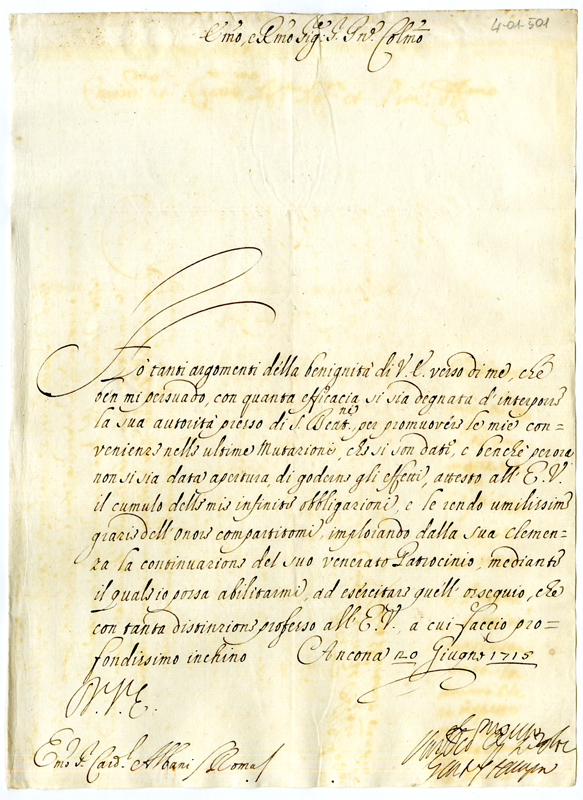 Emo, e Rmo Sig.r P.rn Pne Colmo
4-01-501
Hò tanti argomenti della benignità di V. E. verso di me, che
ben mi persuado, con quanta efficacia si sia degnata d'interporre
la sua autorità presso di S. Beat.ne, per promuovere le mie con=
venienze nelle ultime Mutazioni, che si son date, e benche per ora
non si sia data apertura di goderne gli effetti, attesto all' E. V.
il cumulo delle mie infinite obbligazioni, e le rendo umilissime
grazie dell'onore compartitomi, implorando dalla sua clemen=
za la continuazione del suo venerato Patrocinio, mediante
il quale io possa abilitarmi, ad esercitare quell' ossequio, che
con tanta distinzione professo all' E. V., a cui faccio pro=
fondissimo inchino Ancona 20 Giugno 1715
Emo Sr. Card.l Albani Roma